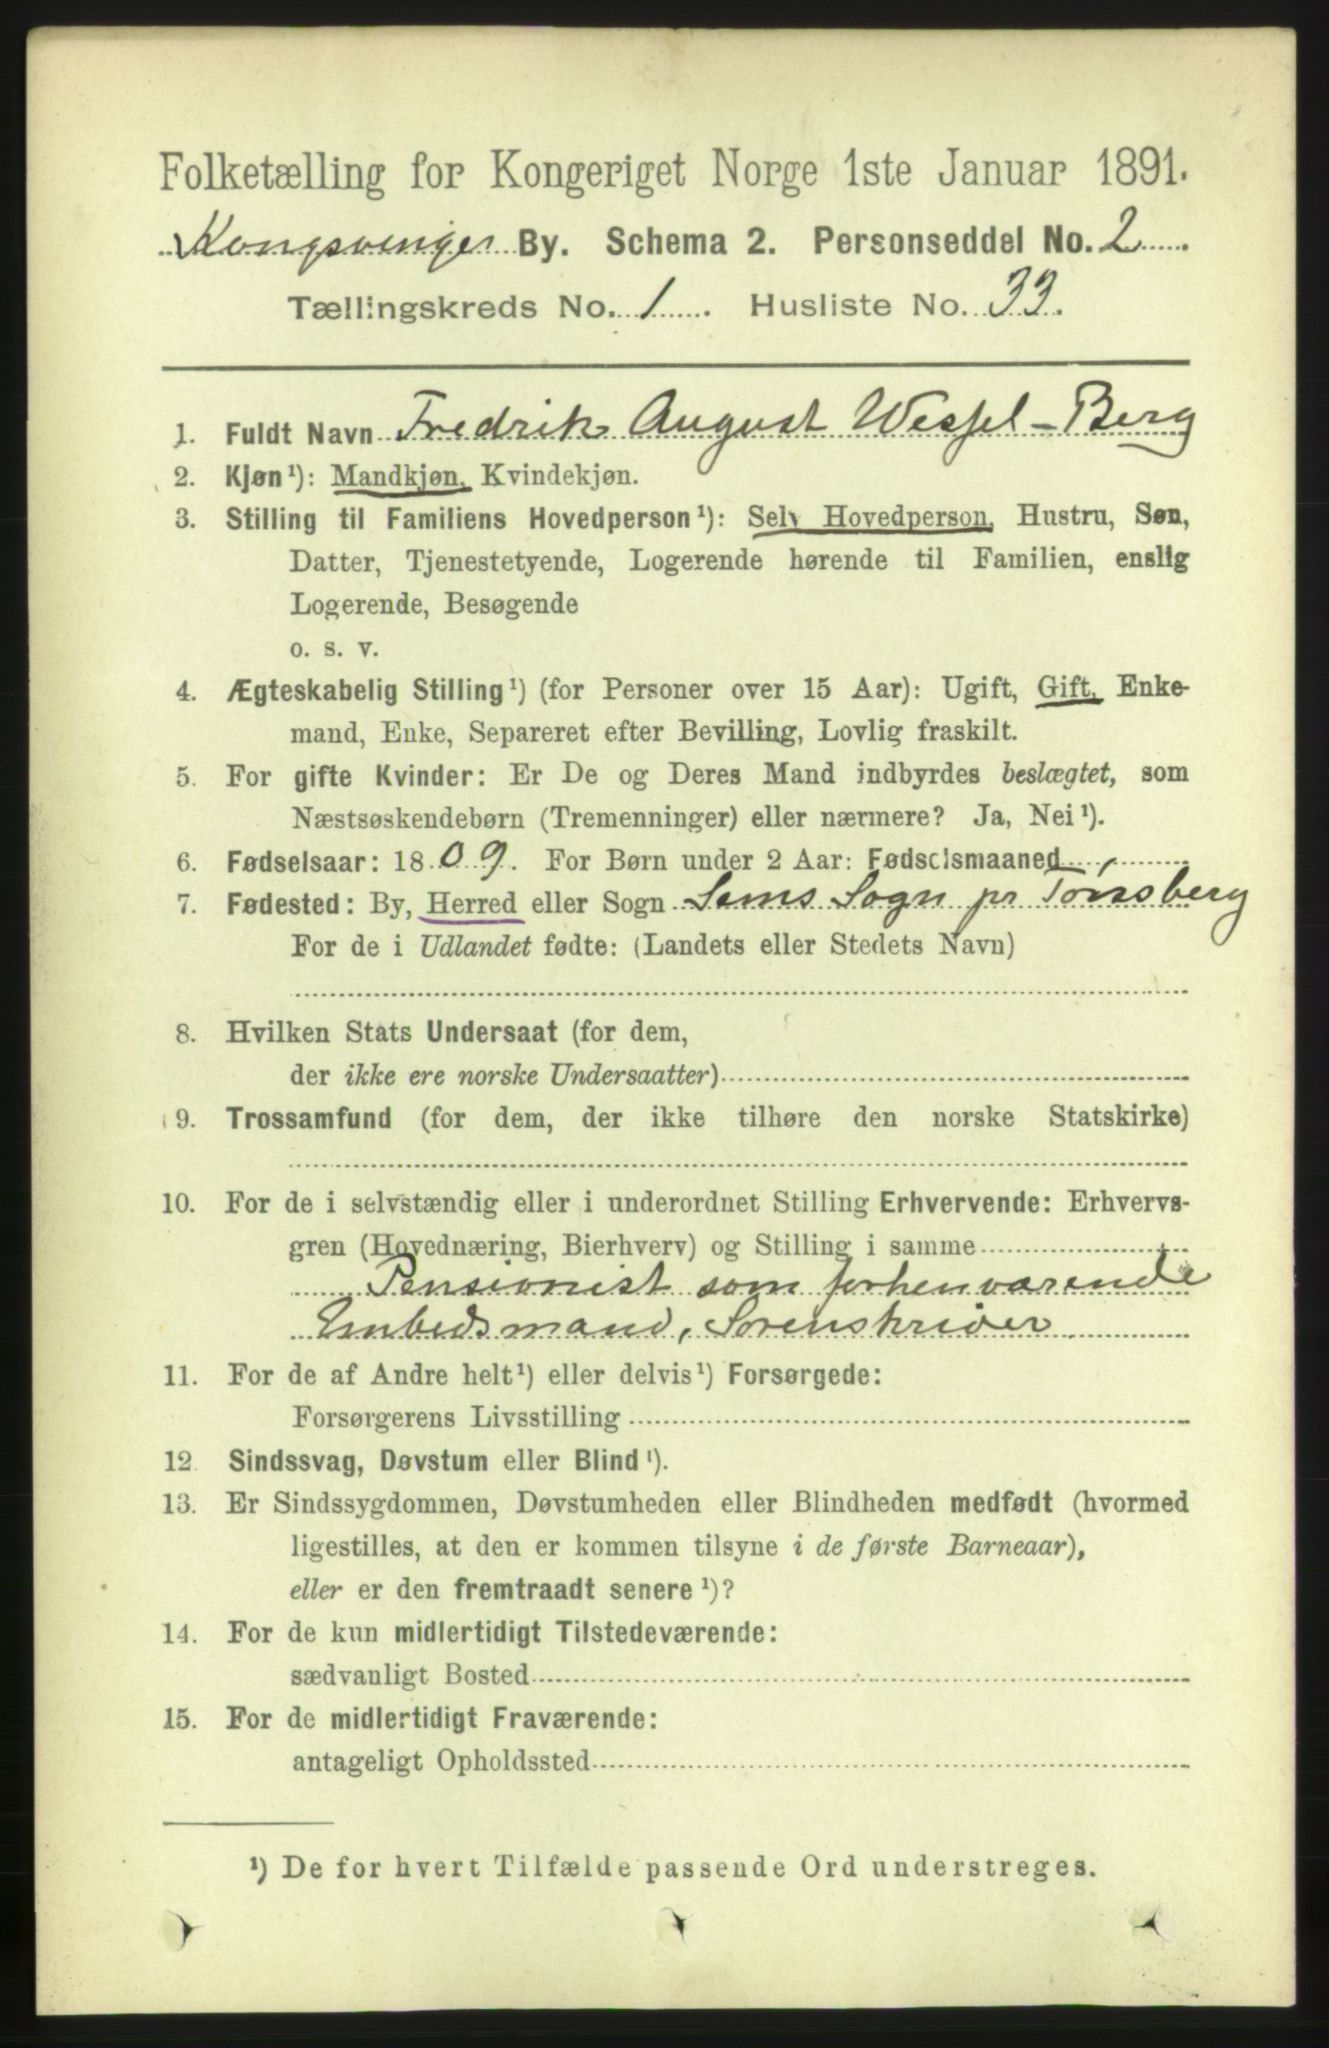 Folketælling for Kongeriget Norge 1ste Januar 1891.
Kongsvinger By. Schema 2. Personseddel No. 2
Tællingskreds No. 1. Husliste No. 33.
1. Fuldt Navn Fredrik August Wessel-Berg
2. Kjøn¹): Mandkjøn, Kvindekjøn.
3. Stilling til Familiens Hovedperson¹): Selv Hovedperson, Hustru, Søn,
Datter, Tjenestetyende, Logerende hørende til Familien, enslig
Logerende, Besøgende
o. s. v.
4. Ægteskabelig Stilling¹) (for Personer over 15 Aar): Ugift, Gift, Enke-
mand, Enke, Separeret efter Bevilling, Lovlig fraskilt.
5. For gifte Kvinder: Er De og Deres Mand indbyrdes beslægtet, som
Næstsøskendebørn (Tremenninger) eller nærmere? Ja, Nei¹).
6. Fødselsaar: 1809. For Børn under 2 Aar: Fødselsmaaned
7. Fødested: By, Herred eller Sogn Sems Sogn pr Tønsberg
For de i Udlandet fødte: (Landets eller Stedets Navn)
8. Hvilken Stats Undersaat (for dem,
der ikke ere norske Undersaatter)
9. Trossamfund (for dem, der ikke tilhøre den norske Statskirke)
10. For de i selvstændig eller i underordnet Stilling Erhvervende: Erhvervs-
gren (Hovednæring, Bierhverv) og Stilling i samme
Pensionist som forhenværende
Embedsmand, Sorenskriver
11. For de af Andre helt¹) eller delvis¹) Forsørgede:
Forsørgerens Livsstilling
12 Sindssvag, Døvstum eller Blind¹).
13. Er Sindssygdommen, Døvstumheden eller Blindheden medfødt (hvormed
ligestilles, at den er kommen tilsyne i de første Barneaar),
eller er den fremtraadt senere¹)?
14. For de kun midlertidigt Tilstedeværende:
sædvanligt Bosted
15. For de midlertidigt Fraværende:
antageligt Opholdssted
¹) De for hvert Tilfælde passende Ord understreges.